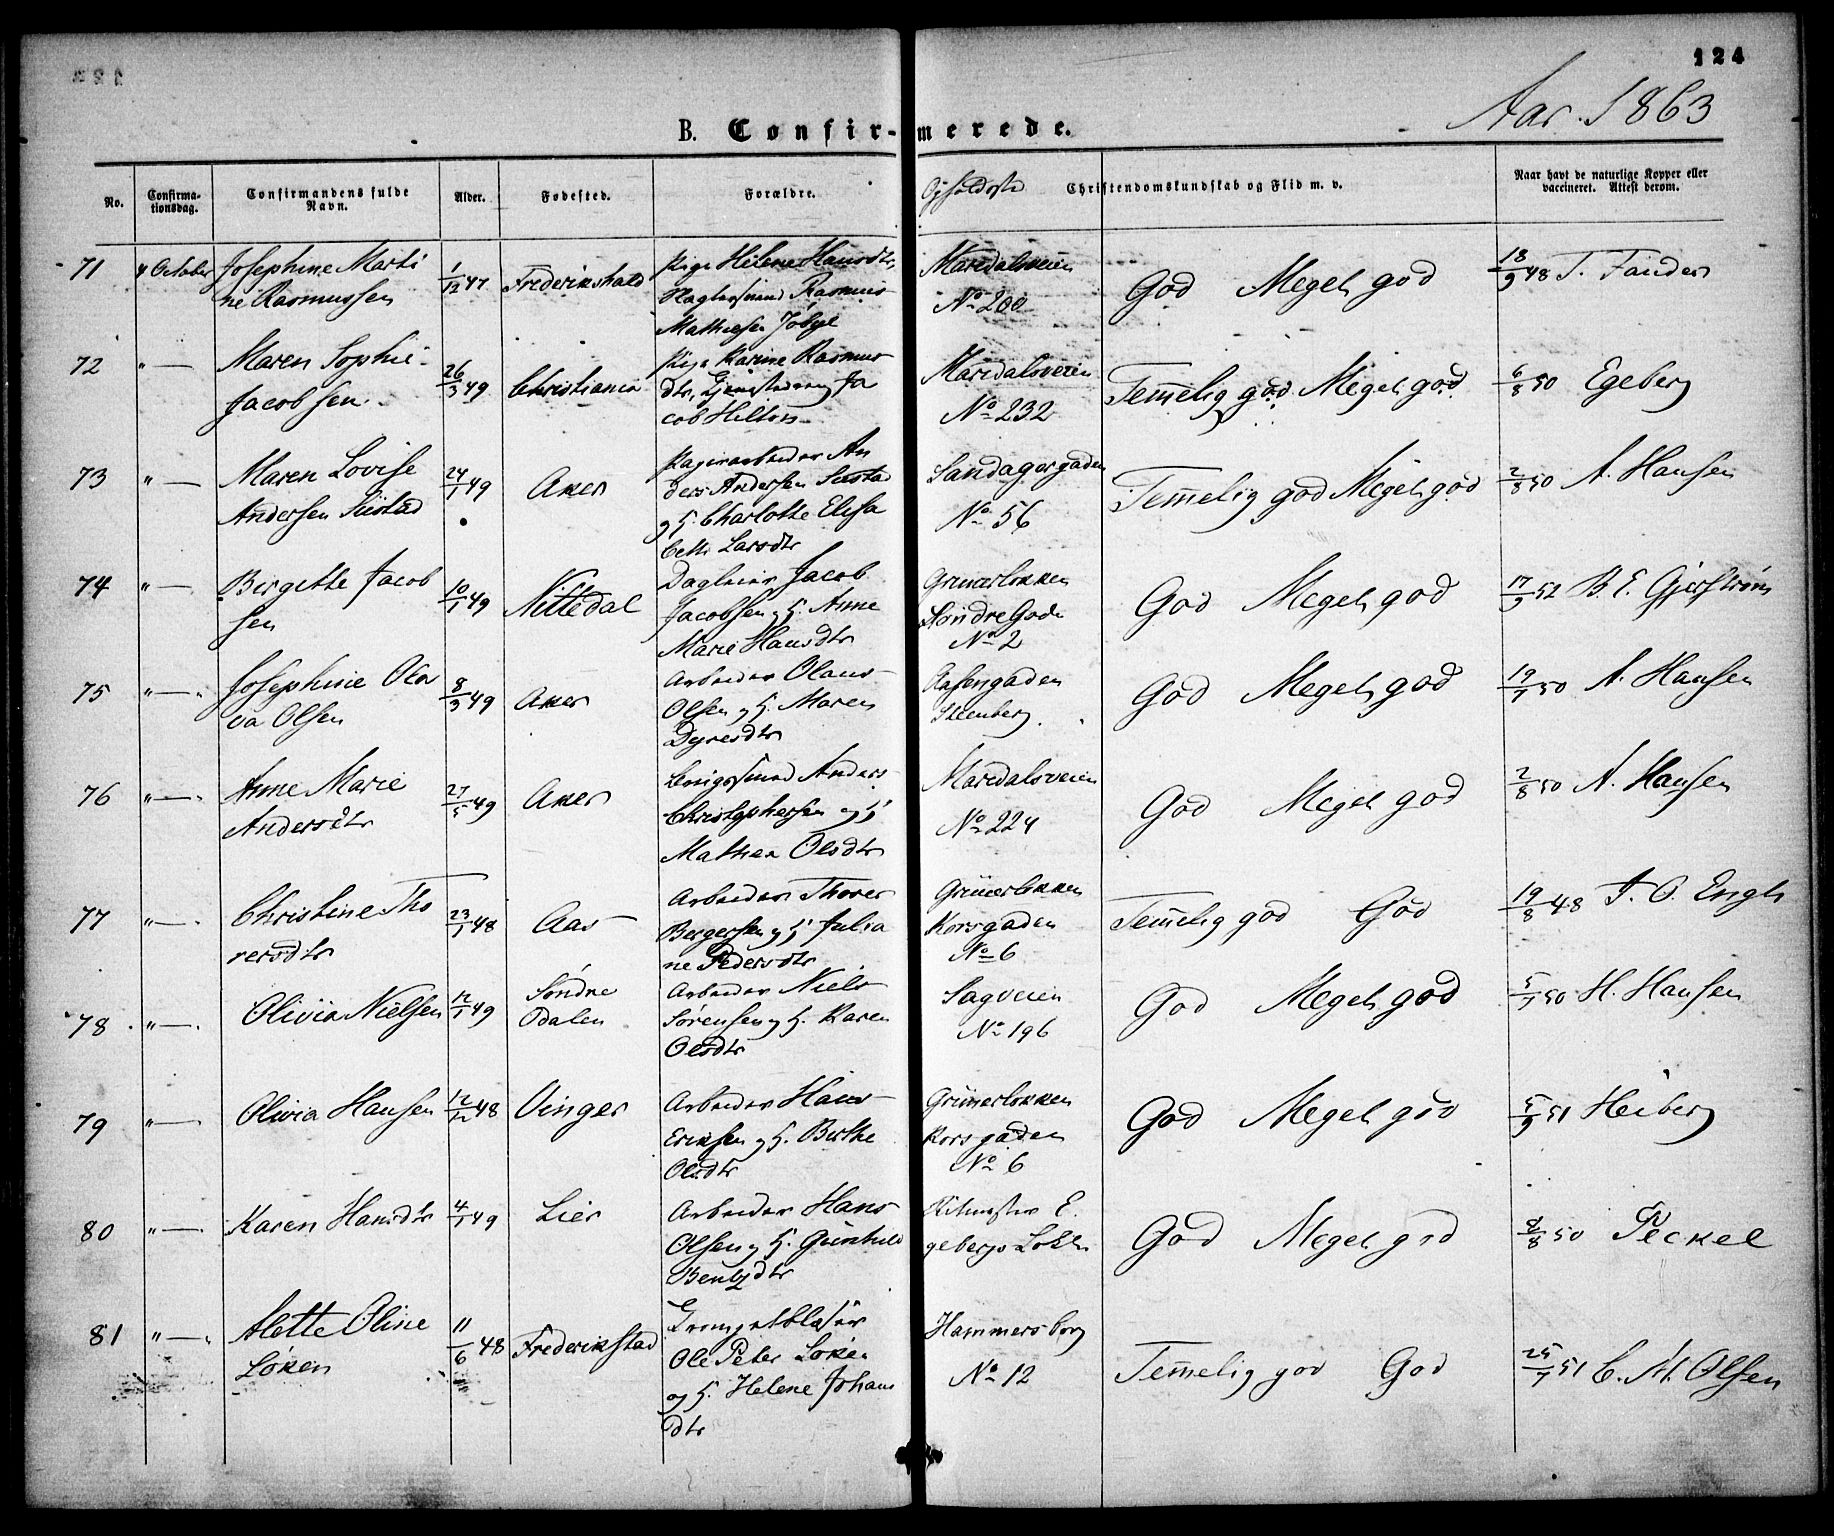 124
Aar 1863
B. Confirmerede.
No.
Confirma-
tionsdag.
Confirmandens fulde
Navn.
Alder.
Fødested.
Forældre.
Opholdsste
Christendomskundskab og Flid m. v.
Naar havt de naturlige Kopper eller
vaccineret. Attest derom.
71 4 October Josephine Marti
ne Rasmussen
1/12 47 Frederikshald
Pige Helene Hansdtr,
Rasmus
Mathiesen
Maridalsveien
No 200
God Meget god
18/9 48 T.
72 " — Maren Sophie
Jacobsen
26/3 49 Christiania
Pige Karine Rasmus
dtr, Ja
cob Hilton
Maridalsveien
No 232
Temelig god Meget god
6/8 50 Egeberg
73 " — Maren Lovise
Andersen Siestad
24/1 49 Aker
Papirarbeider An
ders Andersen Siestad
og H. Charlotte Elisa
beth Larsdtr
Sandagergaden
No 56
Temelig god Meget god
2/8 50 A. Hansen
74 " — Birgitte Jacob
sen
10/1 49 Nittedal
Dagleier Jacob
Jacobsen og H. Anne
Marie Hansdtr
Grünerløkken
Søndre Gade
No 2
God Meget god
17/9 52 B. E. Gjerstrøm
75 " — Josephine Ola
va Olsen
8/3 49 Aker
Arbeider Olaus
Olsen og H. Maren
Dyresdtr
Aasengaden
Steenberg.
God Meget god
19/7 50 A. Hansen
76 " — Anne Marie
Andersdtr
27/5 49 Aker
Anders
Christophersen og H
Mathea Olsdtr
Maridalsveien
No 224
God Meget god
2/8 50 A. Hansen
77 " — Christine Tho
rersdtr
23/1 48 Aas
Arbeider Thorer
Bergersen og H Julia
ne Pedersdtr
Grünerløkken
Korsgaden
No 6
Temelig god God
19/8 48 T. O. Engh
78 " — Olivia Nielsen
12/1 49 Søndre
Odalen
Arbeider Niels
Sørensen og H. Karen
Olsdtr
Sagveien
No 196
God Meget god
5/7 50 H. Hansen
79 " — Olivia Hansen
12/12 48 Vinger
Arbeider Hans
Eriksen og H. Birthe
Olsdtr
Grünerløkken
Korsgaden
No 6
God Meget god
5/9 51 Heiberg
80 " — Karen Hansdtr
4/1 49 Lier
Arbeider Hans
Olsen og H. Gunhild
Bentsdtr
Ritmester E.
gebergs Løkke
God Meget god
8/8 50 Peckel
81 " — Alette Oline
Løken
11/6 48 Frederikstad
Trompetblæser
Ole Peter Løken
og H. Helene Johans
dtr
Hammersborg
No 12
Temelig god God
25/7 51 C. M. Olsen